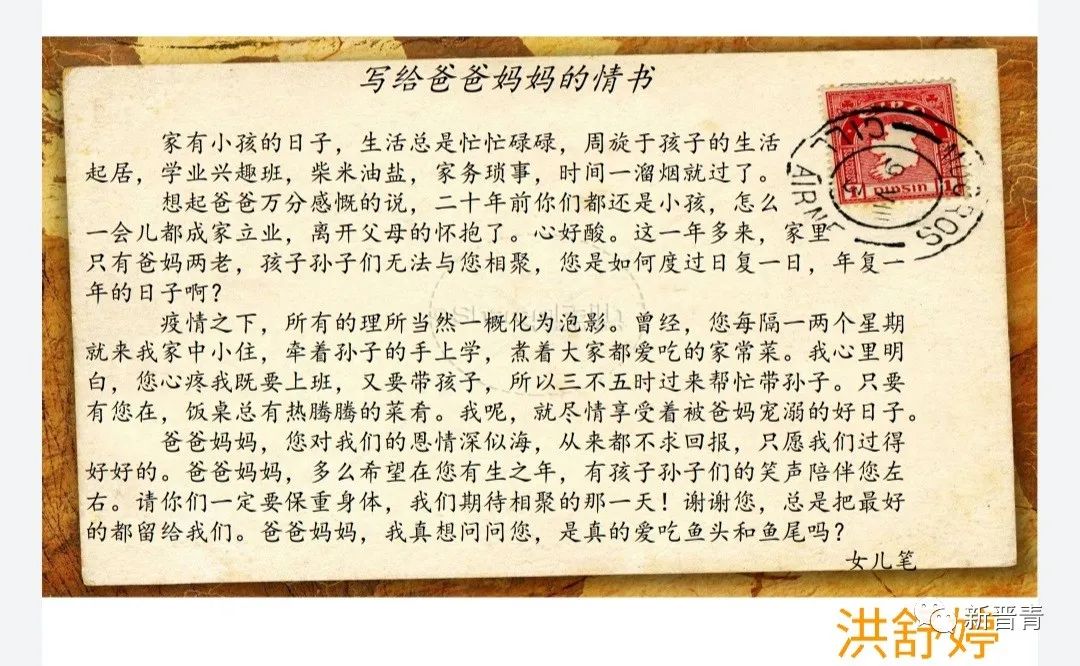 写给爸爸妈妈的情书
家有小孩的日子，生活总是忙忙碌碌，周旋于孩子的生活
起居，学业兴趣班，柴米油盐，家务琐事，时间一溜烟就过了。
想起爸爸万分感慨的说，二十年前你们都还是小孩，怎么
一会儿都成家立业，离开父母的怀抱了。心好酸。这一年多来，家里
只有爸妈两老，孩子孙子们无法与您相聚，您是如何度过日复一日，年复一
年的日子啊？
疫情之下，所有的理所当然一概化为泡影。曾经，您每隔一两个星期
就来我家中小住，牵着孙子的手上学，煮着大家都爱吃的家常菜。我心里明
白，您心疼我既要上班，又要带孩子，所以三不五时过来帮忙带孙子。只要
有您在，饭桌总有热腾腾的菜肴。我呢，就尽情享受着被爸妈宠溺的好日子。
爸爸妈妈，您对我们的恩情深似海，从来都不求回报，只愿我们过得
好好的。爸爸妈妈，多么希望在您有生之年，有孩子孙子们的笑声陪伴您左
右。请你们一定要保重身体，我们期待相聚的那一天！谢谢您，总是把最好
的都留给我们。爸爸妈妈，我真想问问您，是真的爱吃鱼头和鱼尾吗？
女儿笔
洪舒婷
新晋青